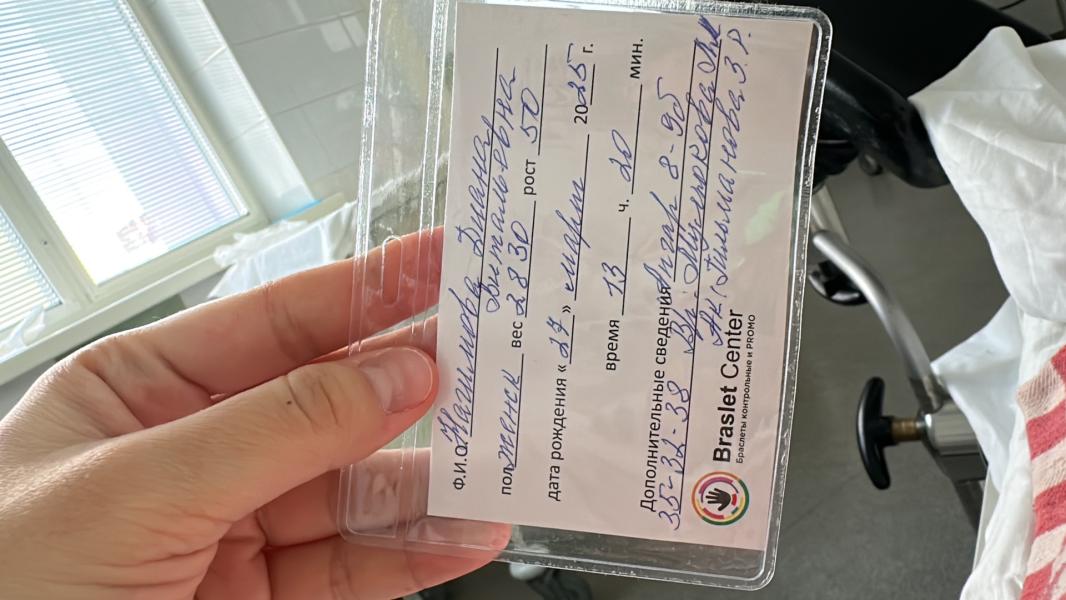 Ф.И.О. Налимова Диана
Витальевна
пол женск вес 2830 рост 50
дата рождения «27» март 2025 г.
время 13 ч. 20 мин.
Дополнительные сведения Апгар 8-9б
35-32-38 Вр:
Ак:
Braslet Center
Браслеты контрольные и PROMO